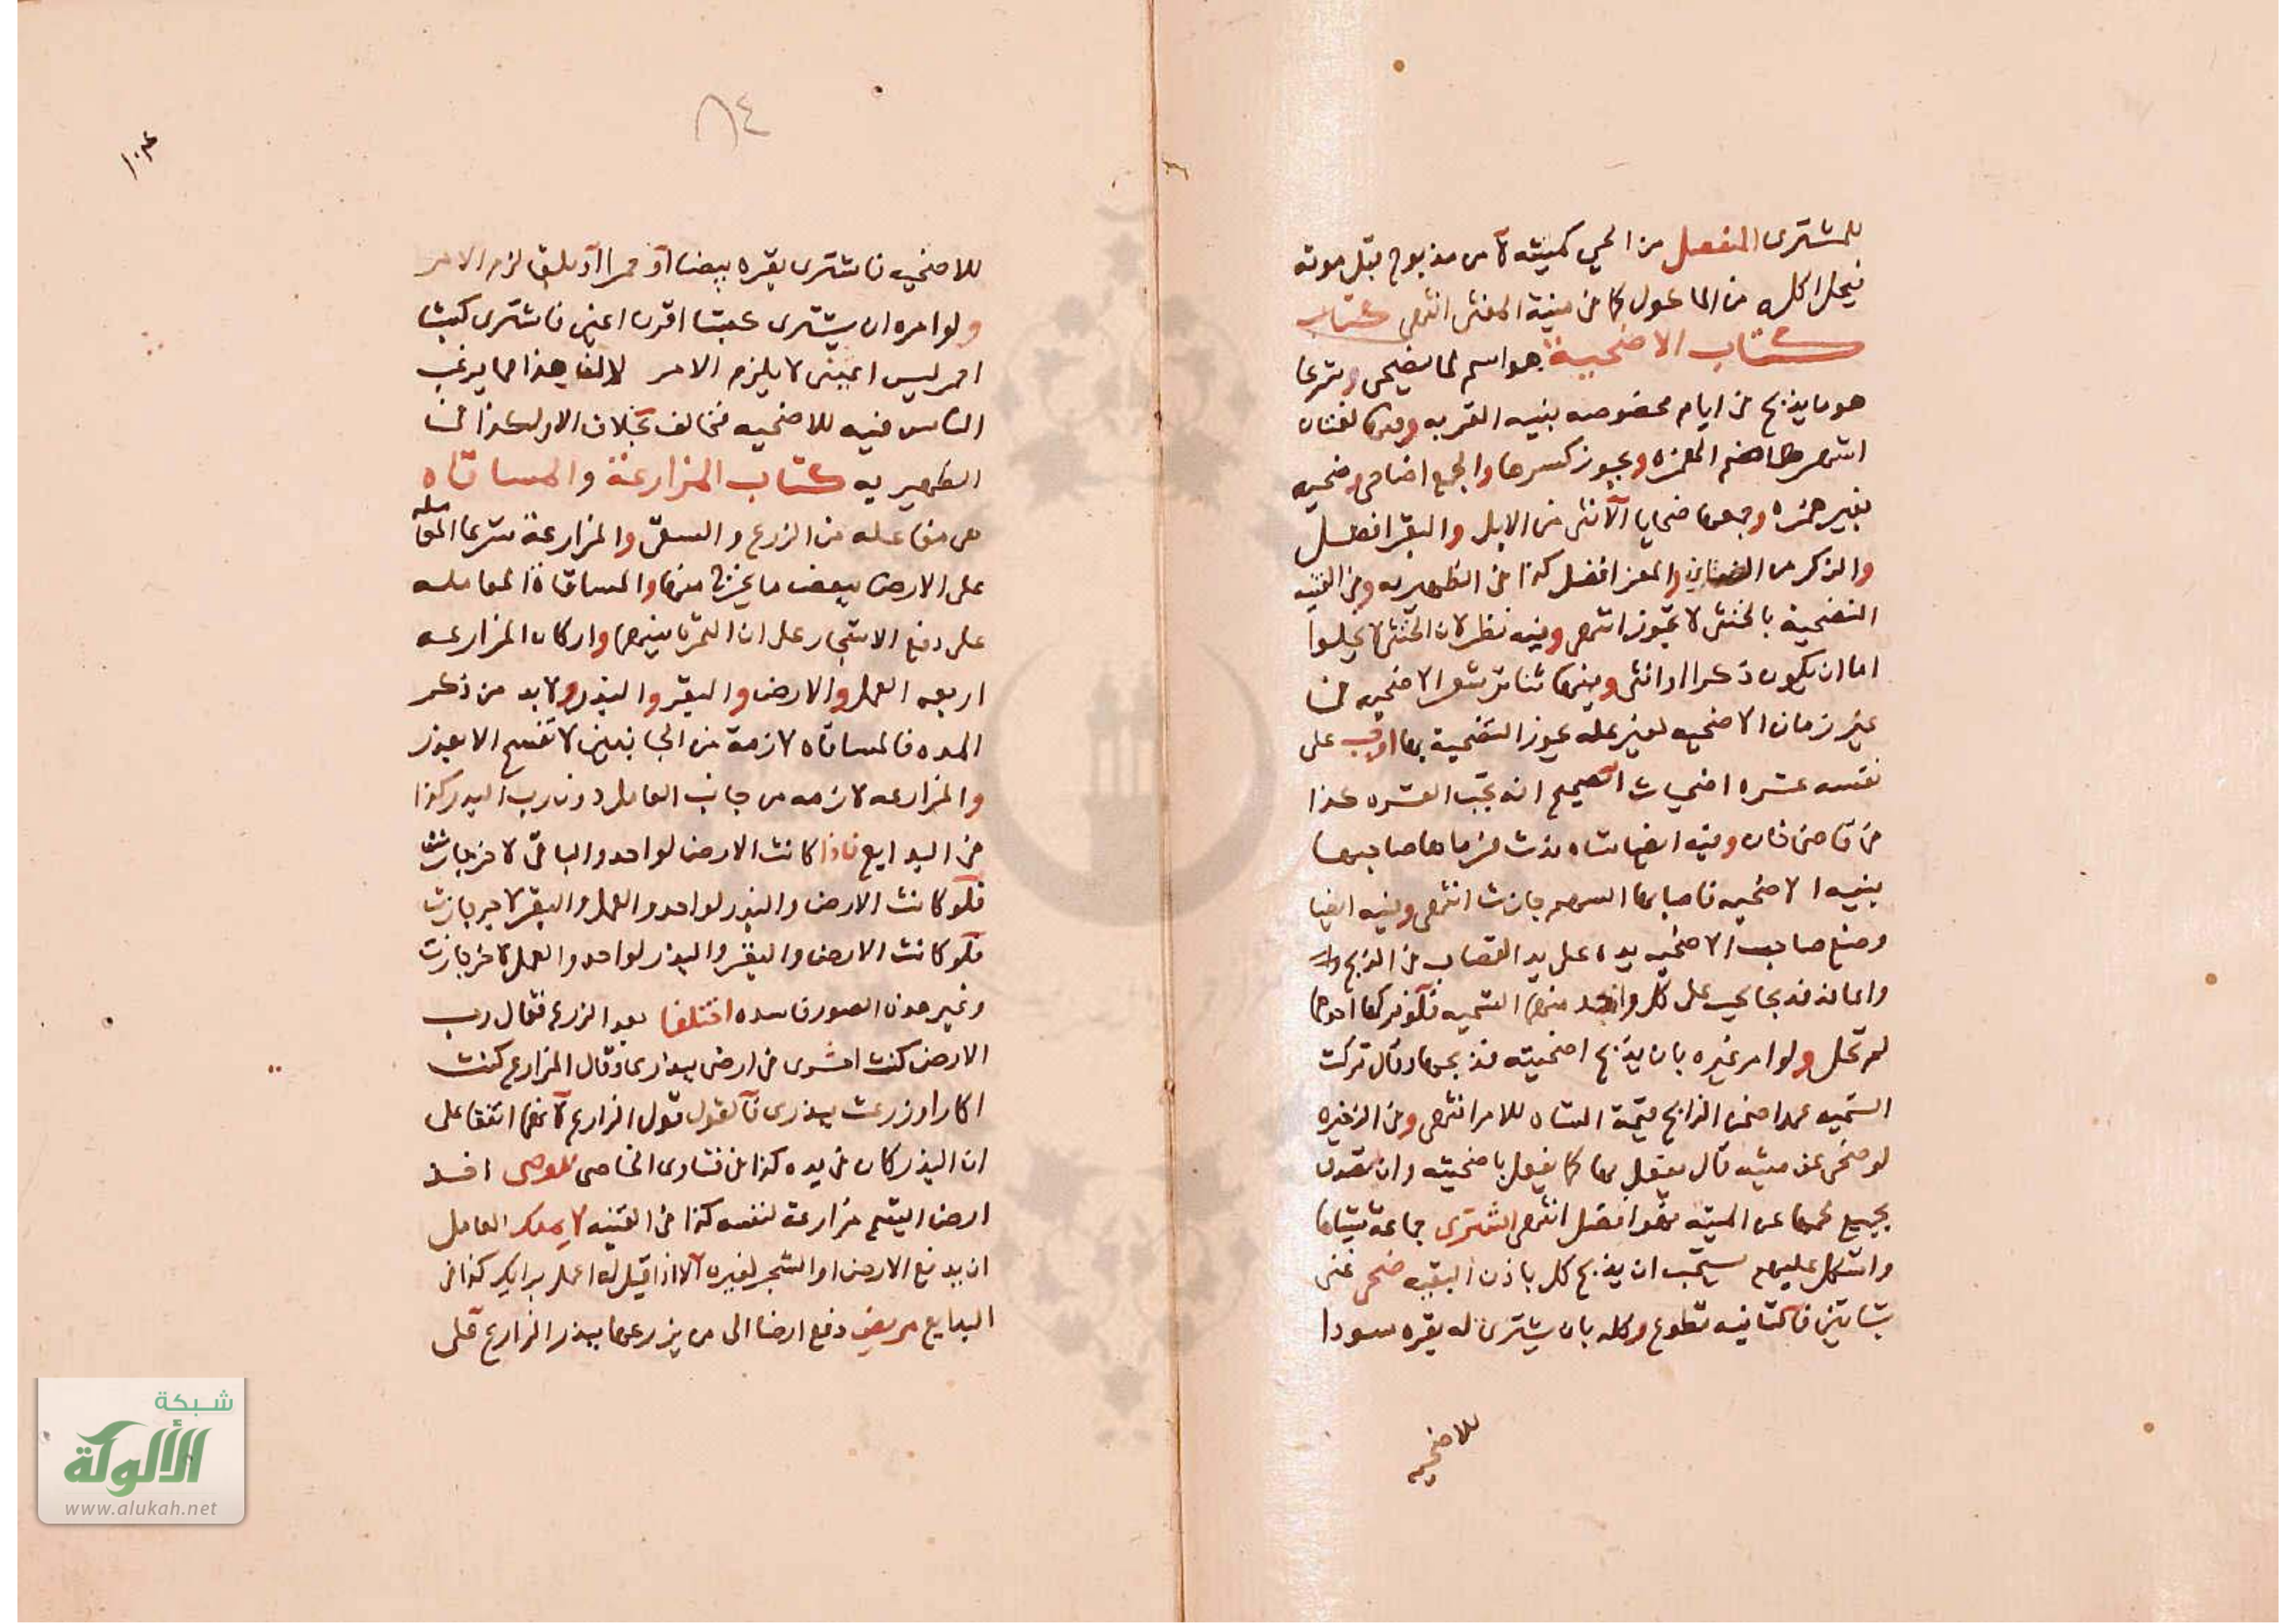 للمشترى المنفصل من الحي كميتته لا من مذبوح قبل موته
فيحل اكله من الماكول كما فى منية المفتى انتهى كتاب
كتاب الاضحية هو اسم لما يضحى وشرعا
هو ما يذبح فى ايام مخصوصه بنيه القربه وفيها لغتان
اشهرها ضم الهمزه ويجوز كسرها والجمع اضاحى وضحيه
بغير همزه وجمعها ضحايا الانثى من الابل والبقر افضل
والذكر من الضان والمعز افضل كذا فى الظهيريه وفى القنيه
التضحية بالخنثى لا تجوز انتهى وفيه نظر لان الخنثى لا يخلوا
اما ان يكون ذكرا او انثى وفيها تناثر شعر الاضحيه فى
غير زمان الاضحيه لغير عله يجوز التضحية بها اوجب على
نفسه عشره اضحيات الصحيح انه تجب العشره كذا
فى قاضى خان وفيه ايضا شاه ندت فرماها صاحبها
بنيه الاضحيه فاصابها السهم جازت انتهى وفيه ايضا
وضع صاحب الاضحيه يده على يد القصاب فى الذبح
واعانه فذبحا يجب على كل واحد منهما التسميه فلو تركها احدهما
لم تحل ولو امر غيره بان يذبح اضحيته فذبحها وقال تركت
التسميه عمدا ضمن الذابح قيمة الشاه للامر انتهى وفى الذخيره
لو ضحى عن ميته قال يفعل بها كما يفعل باضحيته وان تصدق
بجميع لحمها عن الميته فهو افضل انتهى اشترى جماعة شياها
واشكل عليهم يستحب ان يذبح كل باذن البقيه ضحى غنى
بشاتين فالثانيه تطوع وكله بان يشترى له بقره سودا
للاضحيه
٨٤
للاضحيه فاشترى بقره بيضا او حمرا او بلقا لزم الامر
ولو امره ان يشترى كبشا اقرن اعين فاشترى كبشا
احمر ليس اعين لا يلزم الامر لان هذا مما يرغب
الناس فيه للاضحيه فخالف بخلاف الاول كذا فى
الظهيريه كتاب المزارعة والمساقاه
هى مفاعله من الزرع والسقى والمزارعة شرعا المعامله
على الارض ببعض ما يخرج منها والمساقاة المعامله
على دفع الاشجار على ان الثمرة بينهما واركان المزارعه
اربعه العمل والارض والبقر والبذر ولا بد من ذكر
المده فالمساقاه لازمة من الجانبين لا تفسخ الا بعذر
والمزارعه لازمه من جانب العامل دون رب البذر كذا
فى البدايع فاذا كانت الارض لواحد والباقى لاخر جازت
فلو كانت الارض والبذر لواحد والعمل والبقر لاخر جازت
فلو كانت الارض والبقر والبذر لواحد والعمل لاخر جازت
وغير هذه الصور فاسده اختلفا بعد الزرع فقال رب
الارض كنت فى ارضى ببذرى وقال المزارع كنت
اكارا وزرعت ببذرى فالقول قول الزارع لانهما اتفقا على
ان البذر كان فى يده كذا فى فتاوى الخاصى للوصى اخذ
ارض اليتيم مزارعة لنفسه كذا فى القنيه لا يملك العامل
ان يدفع الارض او الشجر لغيره الا اذا قيل له اعمل برايك كذا فى
البدايع مريض دفع ارضا الى من يزرعها ببذر الزارع على
شبكة
الألوكة
www.alukah.net